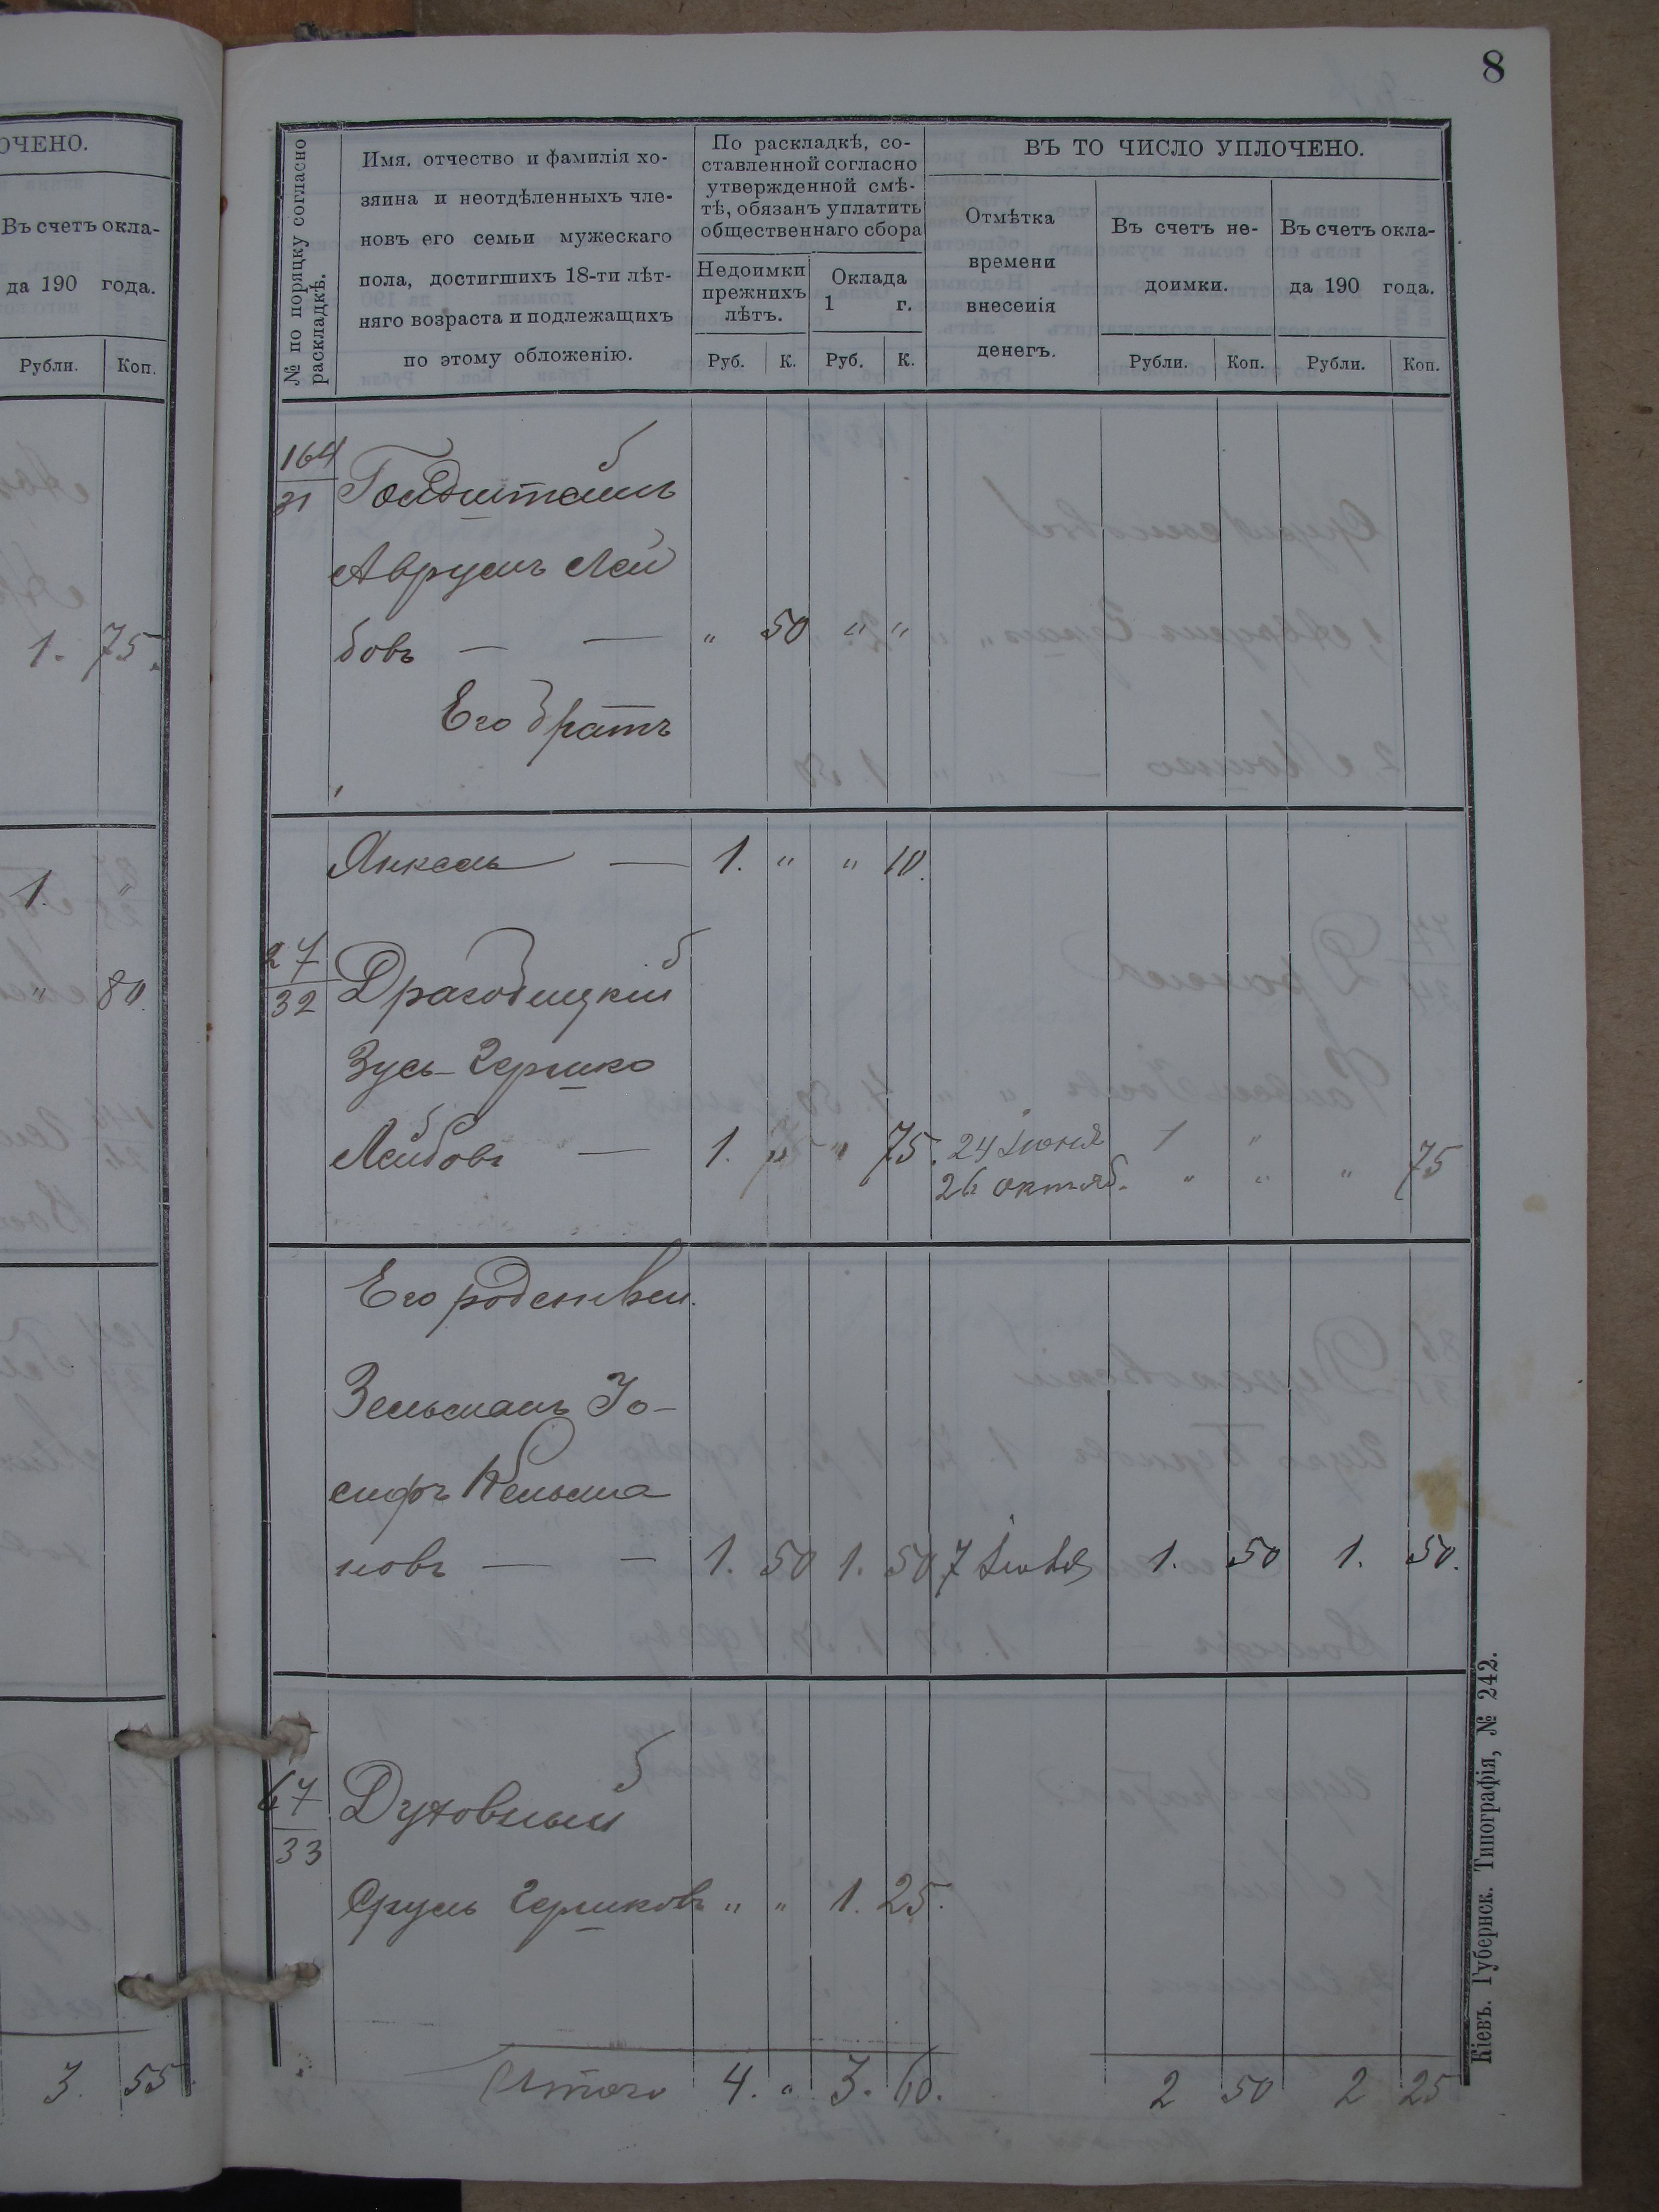 ОЧЕНО.
Въ счетъ окла-
да 190 года.
Рубли. Коп.
1. 75.
1. "
" 80.
3. 55
8
№ по поряцку согласно
раскладкѣ.
Имя, отчество и фамилія хо-
зяина и неотдѣленныхъ чле-
новъ его семьи мужескаго
пола, достигшихъ 18-ти лѣт-
няго возраста и подлежащихъ
по этому обложенію.
По раскладкѣ, со-
ставленной согласно
утвержденной смѣ-
тѣ, обязанъ уплатить
общественнаго сбора
Недоимки
прежнихъ
лѣтъ.
Оклада
1 г.
Руб. К. Руб. К.
ВЪ ТО ЧИСЛО УПЛОЧЕНО.
Отмѣтка
времени
внесенія
денегъ.
Въ счетъ не-
доимки.
Рубли. Коп.
Въ счетъ окла-
да 190 года.
Рубли. Коп.
164
31 Гольдштейнъ
Аврумъ Лей
бовъ — — " 50 " "
Его братъ
Янкель — 1. " " 10.
27
32 Драгобицкій
Зусь-Гершко
Лейбовъ — 1. " " 75. 24 Іюня 1 "
26 октяб. " " " 75
Его родствен.
Зельманъ Іо-
сифъ Кельма
новъ — — 1. 50 1. 50 7 1. 50 1. 50.
67
33 Духовный
Сруль Гершковъ " " 1. 25.
Итого 4. " 3. 60. 2 50 2 25
Кіевъ. Губернск. Типографія, № 242.